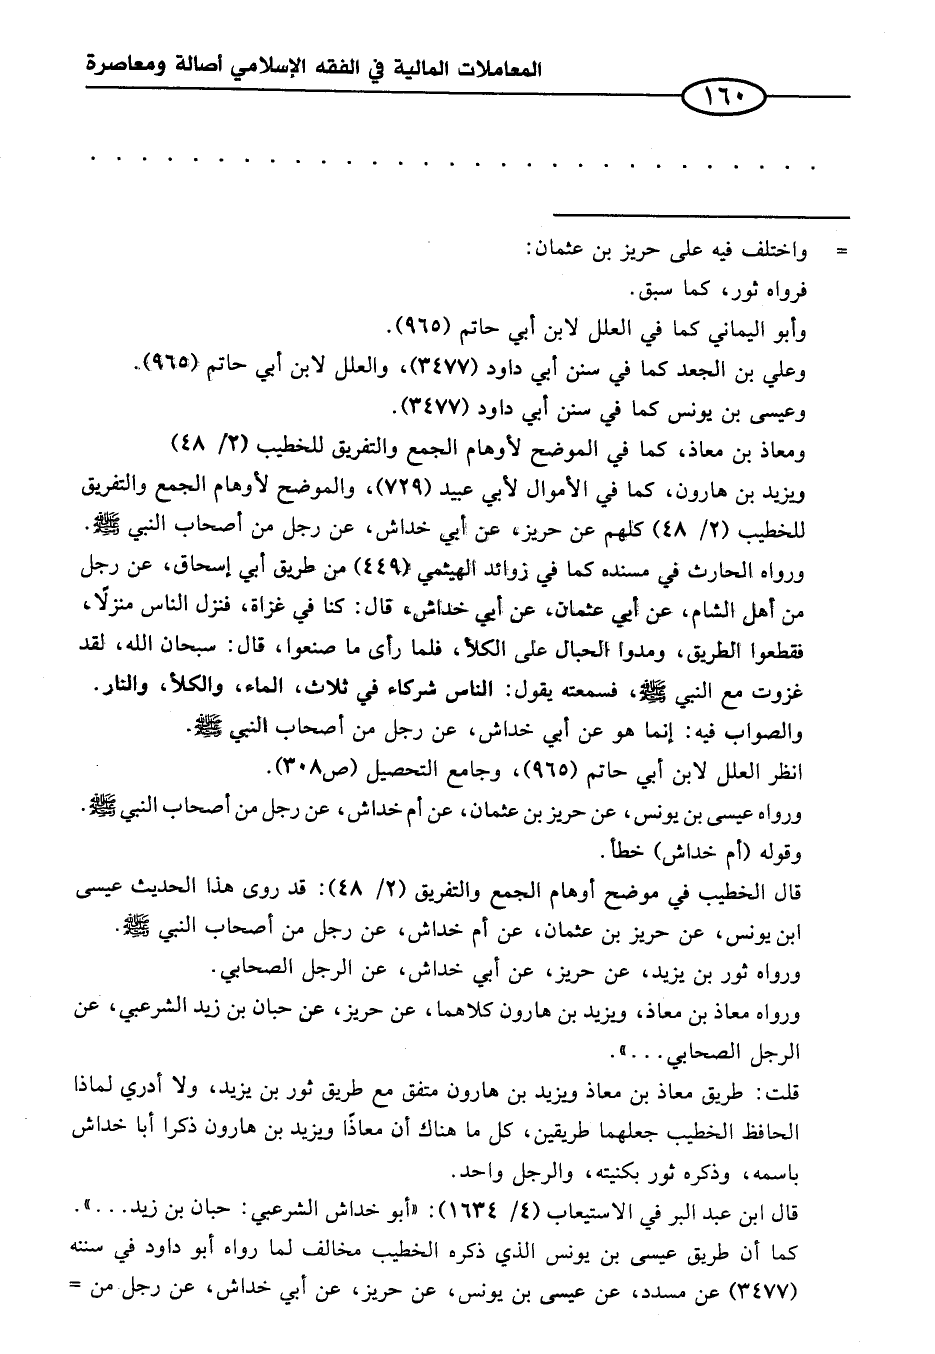 المعاملات المالية في الفقه الإسلامي أصالة ومعاصرة
١٦٠
. . . . . . . . . . . . . . . . . . . . . . . . . . . . .
= واختلف فيه على حريز بن عثمان:
فرواه ثور، كما سبق.
وأبو اليماني كما في العلل لابن أبي حاتم (٩٦٥).
وعلي بن الجعد كما في سنن أبي داود (٣٤٧٧)، والعلل لابن أبي حاتم (٩٦٥).
وعيسى بن يونس كما في سنن أبي داود (٣٤٧٧).
ومعاذ بن معاذ، كما في الموضح لأوهام الجمع والتفريق للخطيب (٢/ ٤٨)
ويزيد بن هارون، كما في الأموال لأبي عبيد (٧٢٩)، والموضح لأوهام الجمع والتفريق
للخطيب (٢/ ٤٨) كلهم عن حريز، عن أبي خداش، عن رجل من أصحاب النبي ﷺ.
ورواه الحارث في مسنده كما في زوائد الهيثمي (٤٤٩) من طريق أبي إسحاق، عن رجل
من أهل الشام، عن أبي عثمان، عن أبي خداش، قال: كنا في غزاة، فنزل الناس منزلًا،
فقطعوا الطريق، ومدوا الحبال على الكلأ، فلما رأى ما صنعوا، قال: سبحان الله، لقد
غزوت مع النبي ﷺ، فسمعته يقول: الناس شركاء في ثلاث، الماء، والكلأ، والنار.
والصواب فيه: إنما هو عن أبي خداش، عن رجل من أصحاب النبي ﷺ.
انظر العلل لابن أبي حاتم (٩٦٥)، وجامع التحصيل (ص٣٠٨).
ورواه عيسى بن يونس، عن حريز بن عثمان، عن أم خداش، عن رجل من أصحاب النبي ﷺ.
وقوله (أم خداش) خطأ.
قال الخطيب في موضح أوهام الجمع والتفريق (٢/ ٤٨): قد روى هذا الحديث عيسى
ابن يونس، عن حريز بن عثمان، عن أم خداش، عن رجل من أصحاب النبي ﷺ.
ورواه ثور بن يزيد، عن حريز، عن أبي خداش، عن الرجل الصحابي.
ورواه معاذ بن معاذ، ويزيد بن هارون كلاهما، عن حريز، عن حبان بن زيد الشرعبي، عن
الرجل الصحابي...».
قلت: طريق معاذ بن معاذ ويزيد بن هارون متفق مع طريق ثور بن يزيد، ولا أدري لماذا
الحافظ الخطيب جعلهما طريقين، كل ما هناك أن معاذًا ويزيد بن هارون ذكرا أبا خداش
باسمه، وذكره ثور بكنيته، والرجل واحد.
قال ابن عبد البر في الاستيعاب (٤/ ١٦٣٤): «أبو خداش الشرعبي: حبان بن زيد...».
كما أن طريق عيسى بن يونس الذي ذكره الخطيب مخالف لما رواه أبو داود في سننه
(٣٤٧٧) عن مسدد، عن عيسى بن يونس، عن حريز، عن أبي خداش، عن رجل من =